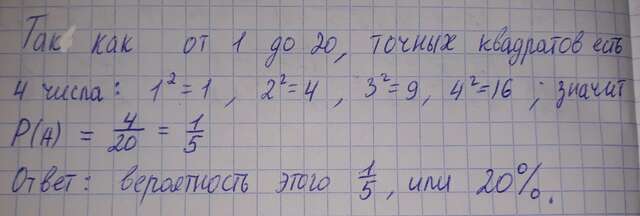 Так как от 1 до 20, точных квадратов есть
4 числа: 1²=1, 2²=4, 3²=9, 4²=16; значит
P(A) = 4/20 = 1/5
Ответ: вероятность этого 1/5, или 20%.